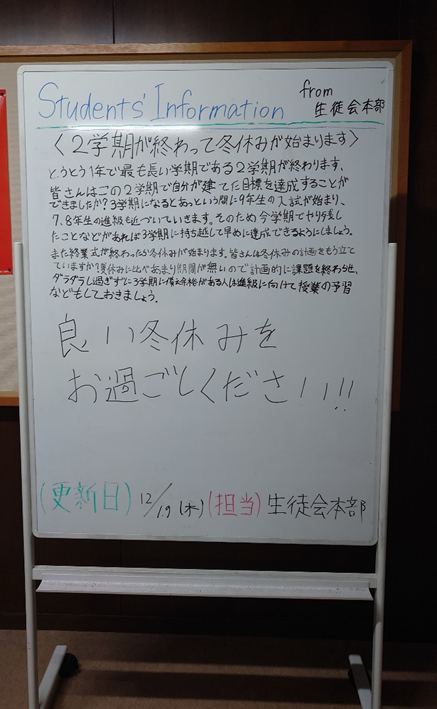 Students' Information
from
生徒会本部
〈2学期が終わって冬休みが始まります〉
とうとう1年で最も長い学期である2学期が終わります。
皆さんはこの2学期で自分が建てた目標を達成することが
できましたか?3学期になるとあっという間に9年生の入試が始まり、
7、8年生の進級も近づいていきます。そのため今学期でやり残し
たことなどがあれば3学期に持ち越して早めに達成できるようにしましょう。
また終業式が終わったら冬休みが始まります。皆さんは冬休みの計画をもう立て
ていますか?夏休みに比べあまり期間が無いので計画的に課題を終わらせ、
ダラダラし過ぎずに3学期に備え余裕がある人は進級に向けて授業の予習
などもしておきましょう。
良い冬休みを
お過ごしください!!
(更新日) 12/19(木) (担当) 生徒会本部